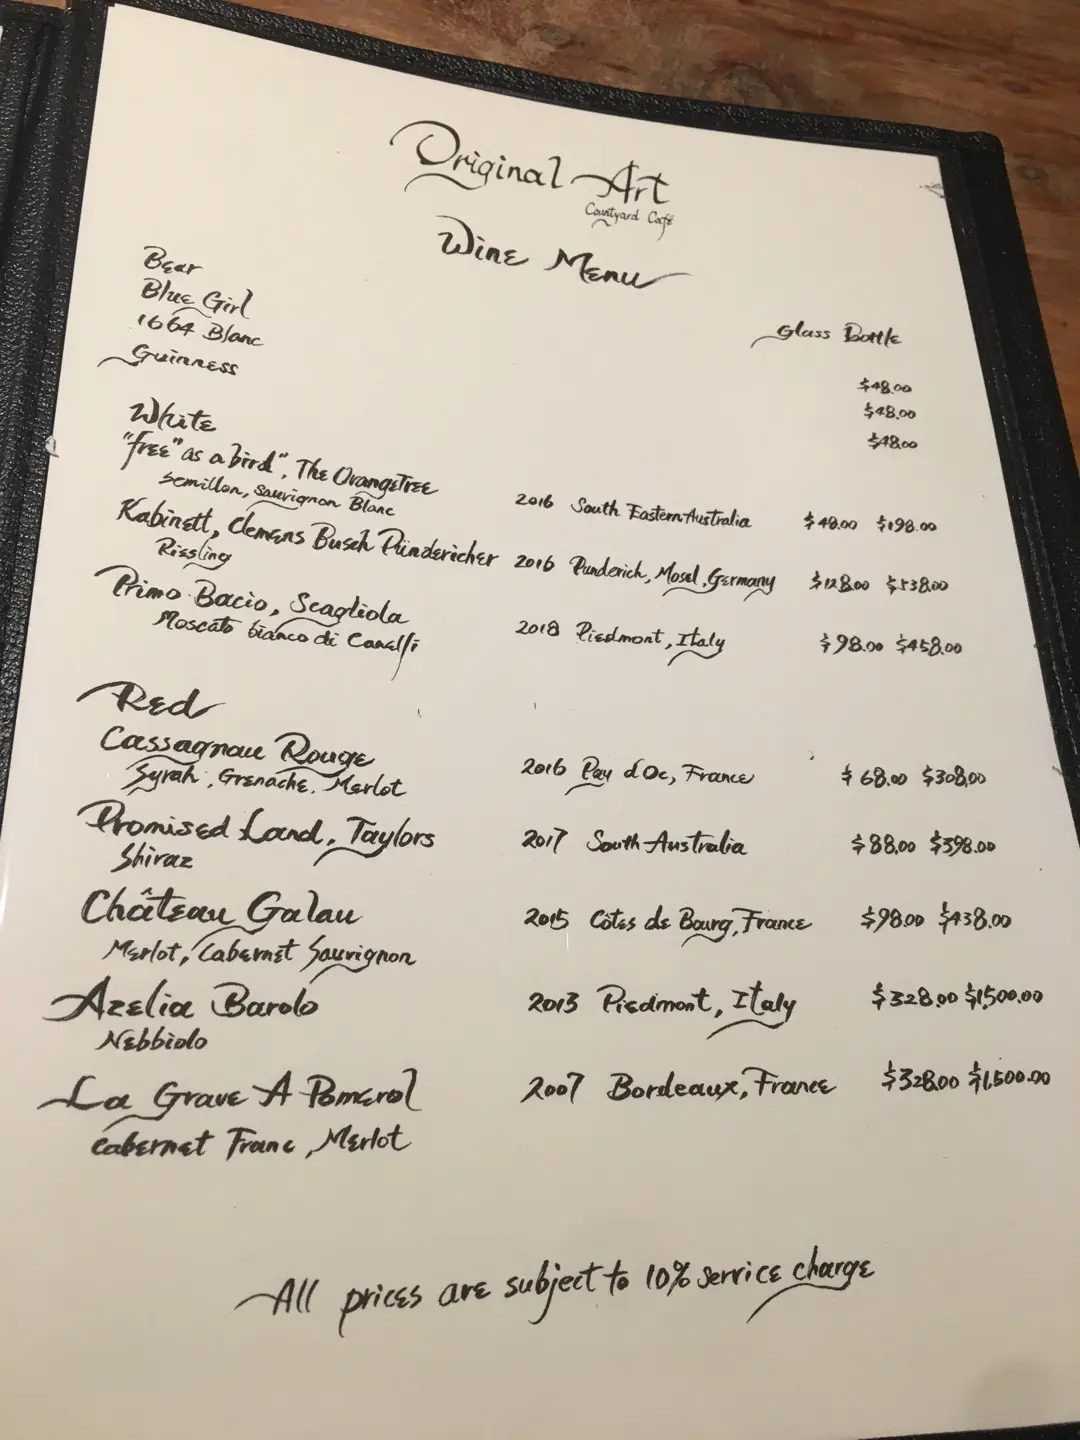 Original Art
Courtyard Café
Wine Menu
Bear
Glass Bottle
Blue Girl $48.00
1664 Blanc $48.00
Guinness $48.00
White
"free" as a bird", The OrangeTree 2016 South Eastern Australia $48.00 $198.00
Semillon, Sauvignon Blanc
Kabinett, Clemens Busch Pündericher 2016 Punderich, Mosel, Germany $128.00 $538.00
Riesling
Primo Bacio, Scagliola 2018 Piedmont, Italy $98.00 $458.00
Moscato bianco di Canelli
Red
Cassagnau Rouge 2016 Pay d'Oc, France $68.00 $308.00
Syrah, Grenache, Merlot
Promised Land, Taylors 2017 South Australia $88.00 $398.00
Shiraz
Château Galau 2015 Côtes de Bourg, France $98.00 $438.00
Merlot, Cabernet Sauvignon
Azelia Barolo 2013 Piedmont, Italy $328.00 $1,500.00
Nebbiolo
La Grave A Pomerol 2007 Bordeaux, France $328.00 $1,500.00
Cabernet Franc, Merlot
All prices are subject to 10% service charge